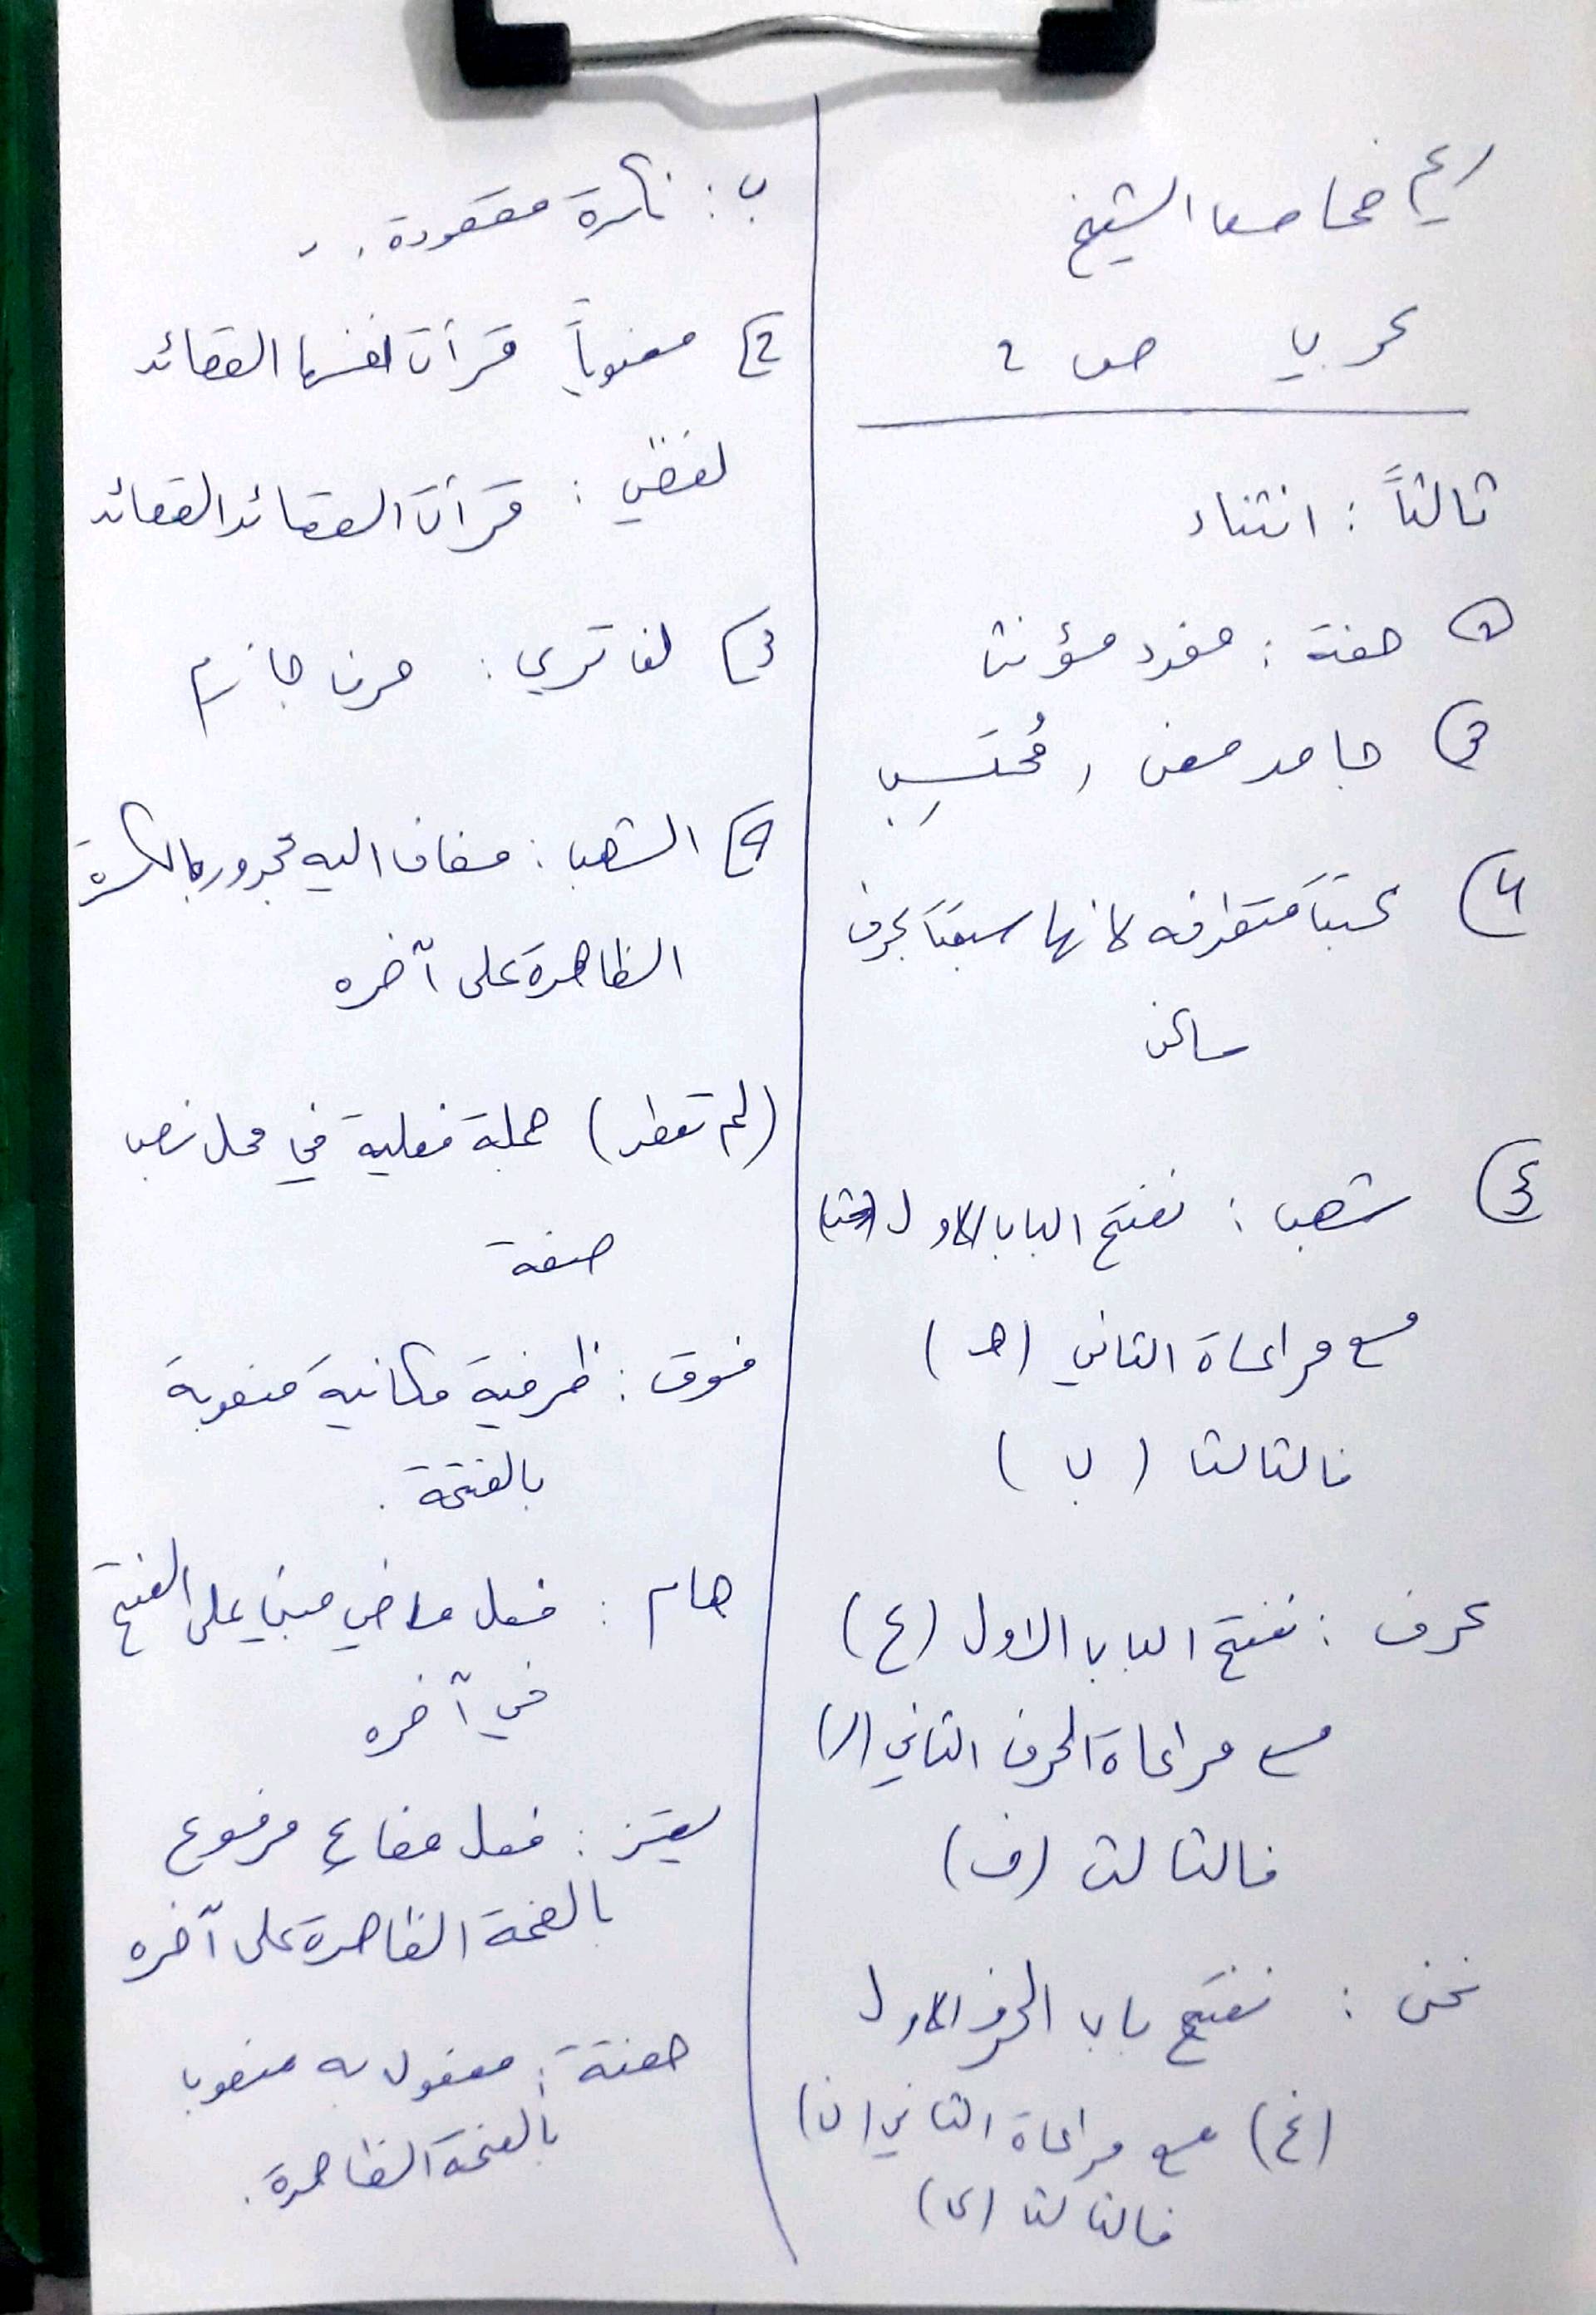 الشيخ
عربي ص ٢
ثالثاً : انثناء
① صفة : مفرد مؤنث
جامد معنى , مُحتسِب
كتبت متطرفه لانها سبقت بحرف
ساكن
④ شهب : نفتح الباب الاول (ش)
مع مراعاة الثاني (هـ)
فالثالث (ب)
عرف : نفتح الباب الاول (ع)
مع مراعاة الحرف الثاني (ر)
فالثالث (ف)
نفتح باب الحرف الاول
(غ) مع مراعاة الثاني (ن)
فالثالث (ى)
ب : نكرة مقصودة .
2) معنوياً قرأت نفسها القصائد
لفظي : قرأت القصائد القصائد
3) حرف جازم
4) الشهب : مضاف اليه مجرور بالكسرة
الظاهرة على آخره
(لم تمطر) جملة فعلية في محل نصب
صفة
فوق : ظرفية مكانية منصوبة
بالفتحة .
هام : فعل ماضي مبني على الفتح
في آخره
يهتز : فعل مضارع مرفوع
بالضمة الظاهرة على آخره
مفعول به منصوب
بالفتحة الظاهرة .